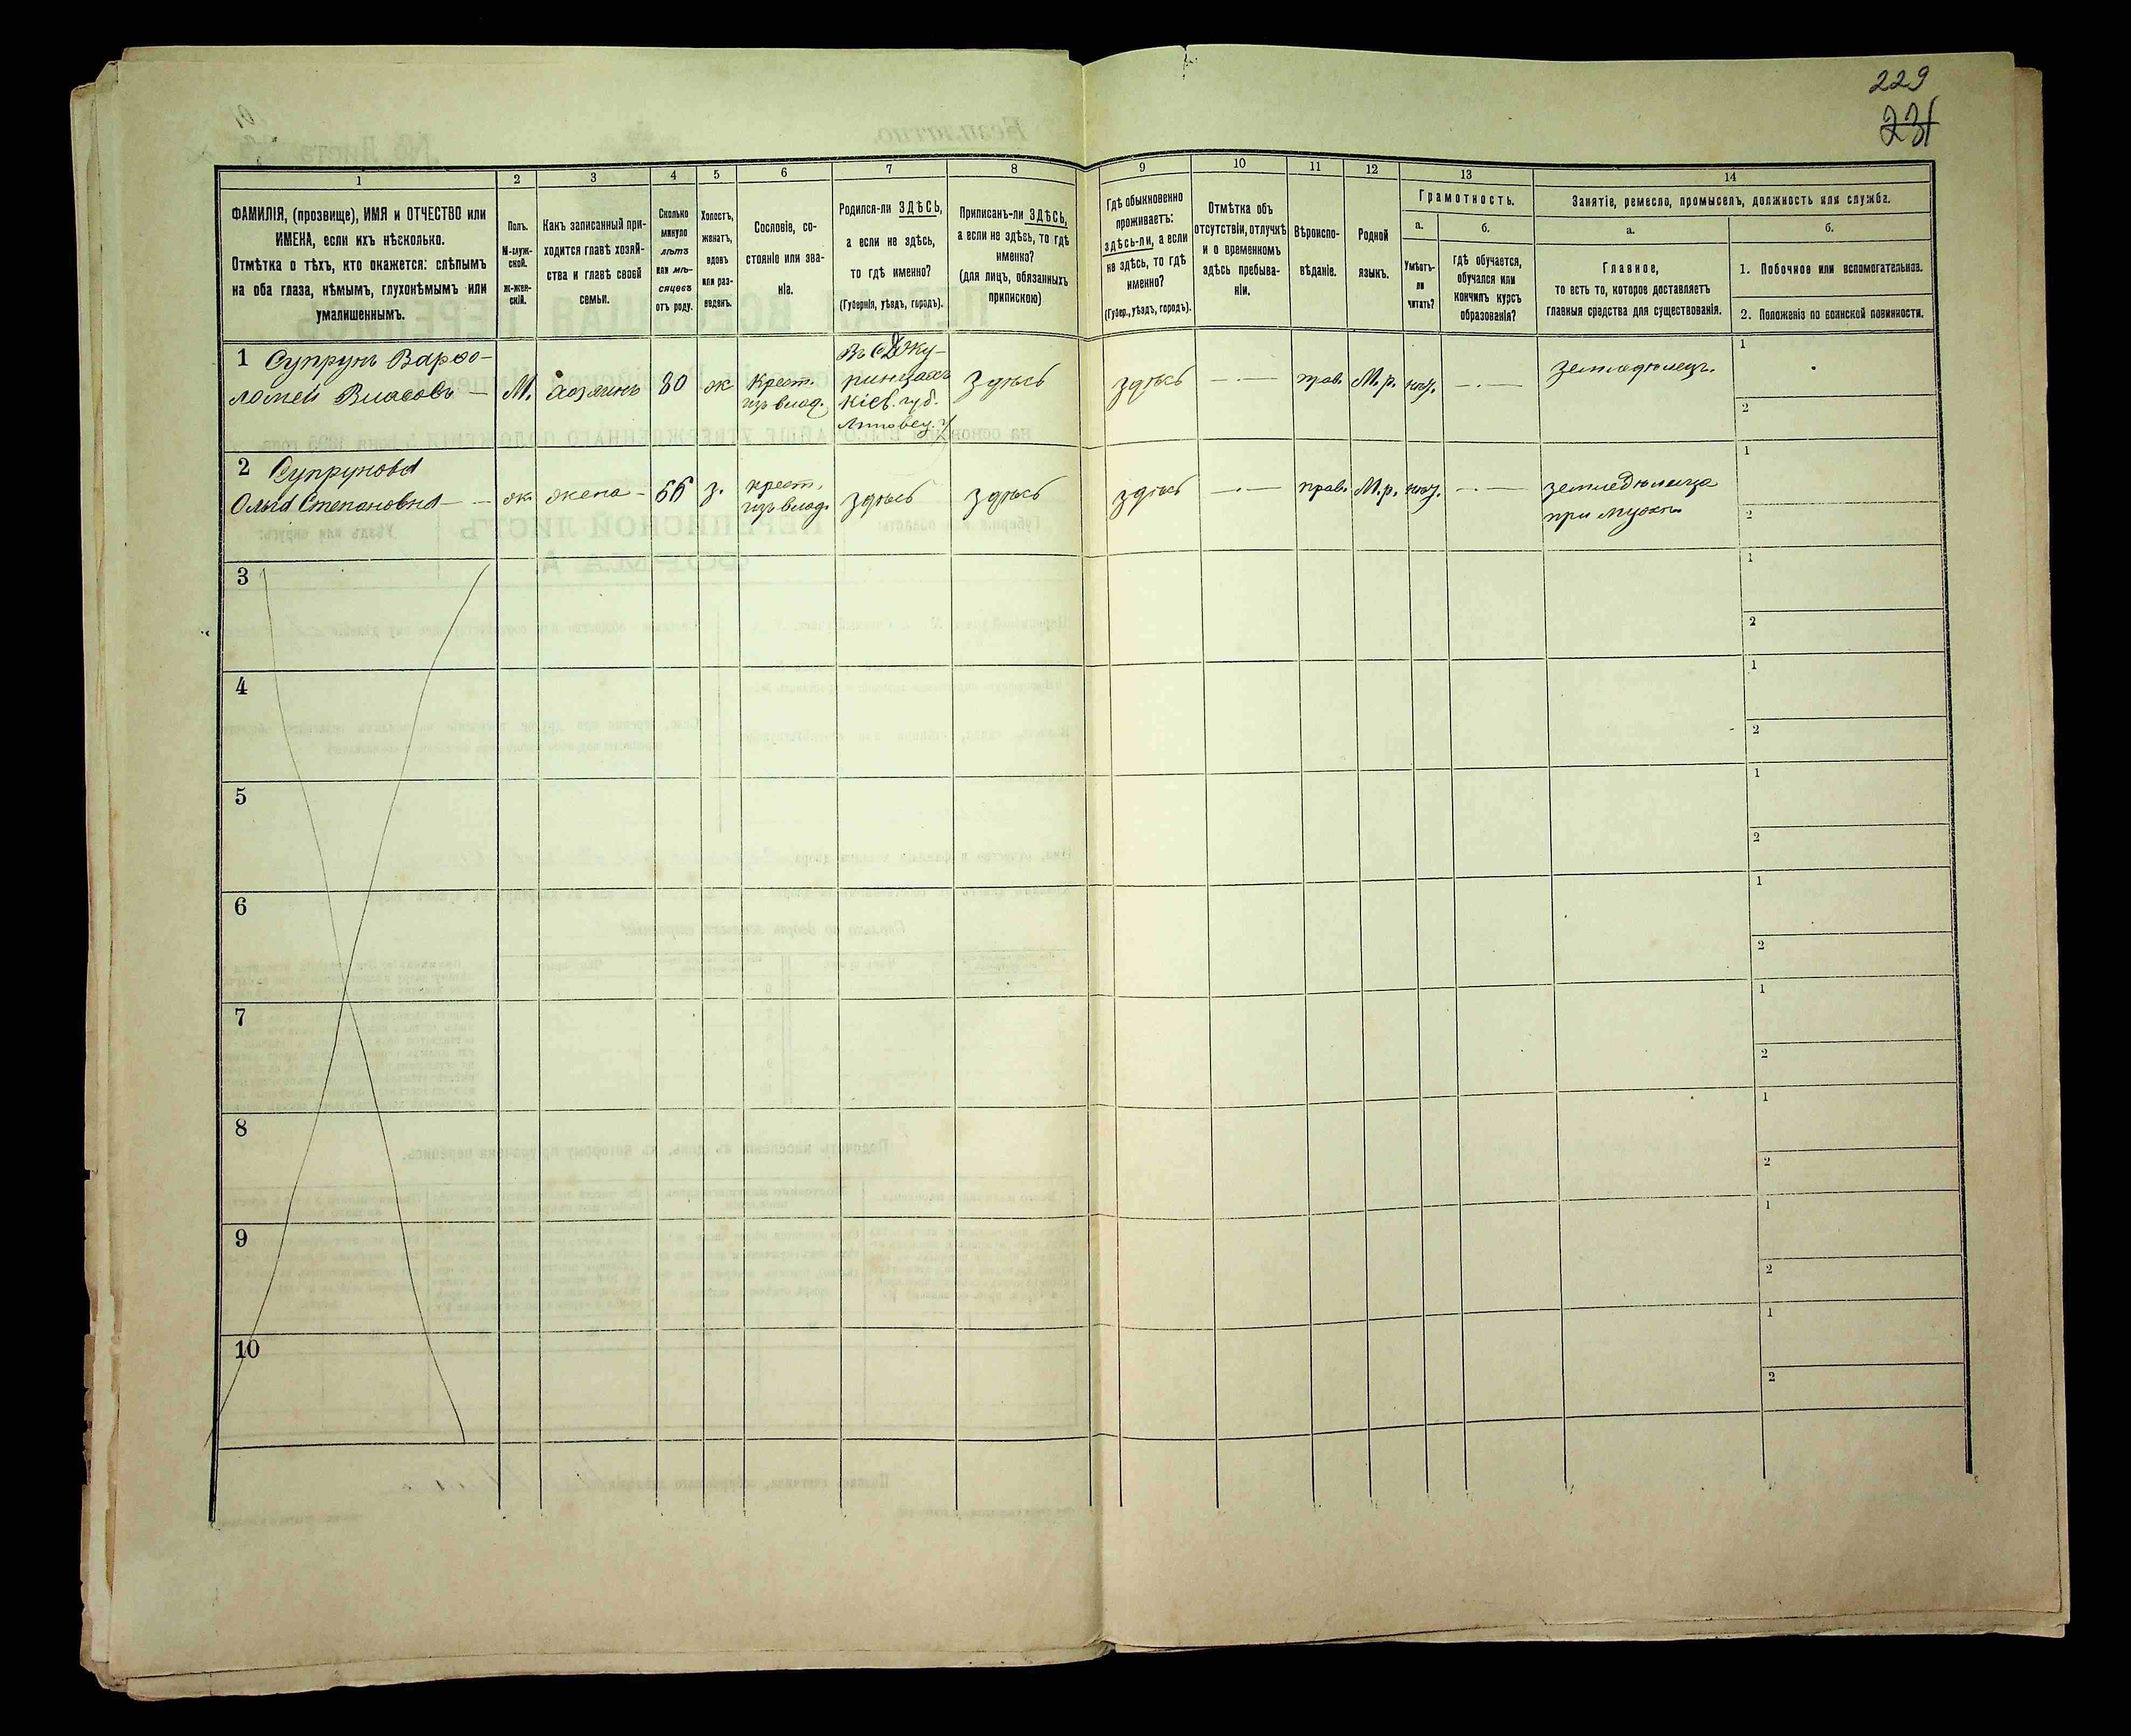 229
231
1
2
3
4
5
6
7
8
9
10
11
12
13
14
ФАМИЛІЯ, (прозвище), ИМЯ и ОТЧЕСТВО или
ИМЕНА, если ихъ нѣсколько.
Отмѣтка о тѣхъ, кто окажется: слѣпымъ
на оба глаза, нѣмымъ, глухонѣмымъ или
умалишеннымъ.
Полъ.
М-муж-
ской.
Ж-жен-
скій.
Какъ записанный при-
ходится главѣ хозяй-
ства и главѣ своей
семьи.
Сколько
минуло
лѣтъ
или мѣ-
сяцевъ
отъ роду.
Холостъ,
женатъ,
вдовъ
или раз-
веденъ.
Сословіе, со-
стояніе или зва-
ніе.
Родился-ли ЗДѢСЬ,
а если не здѣсь,
то гдѣ именно?
(Губернія, уѣздъ, городъ).
Приписанъ-ли ЗДѢСЬ,
а если не здѣсь, то гдѣ
именно?
(для лицъ, обязанныхъ
припискою)
Гдѣ обыкновенно
проживаетъ:
здѣсь-ли, а если
не здѣсь, то гдѣ
именно?
(Губер., уѣздъ, городъ).
Отмѣтка объ
отсутствіи, отлучкѣ
и о временномъ
здѣсь пребыва-
ніи.
Вѣроиспо-
вѣданіе.
Родной
языкъ.
Грамотность.
а.
Умѣетъ-
ли
читать?
б.
гдѣ обучается,
обучался или
кончилъ курсъ
образованія?
Занятіе, ремесло, промыселъ, должность или служба.
а.
Главное,
то есть то, которое доставляетъ
главныя средства для существованія.
б.
1. Побочное или вспомогательное.
2. Положеніе по воинской повинности.
1 Супрунъ Варѳо-
ломей Власовъ —
М.
хозяинъ
80
ж
Крест.
изъ влад.
Кіев. губ.
Липовец. у
Здѣсь
здѣсь
— . —
прав.
М.р.
— . —
земледѣлецъ.
1
2
2 Супрунова
Ольга Степановна —
ж
жена —
66
з.
крест.
изъ влад.
здѣсь
здѣсь
здѣсь
— . —
прав.
М.р.
— . —
земледѣлица
при мужѣ
1
2
3
1
2
4
1
2
5
1
2
6
1
2
7
1
2
8
1
2
9
1
2
10
1
2